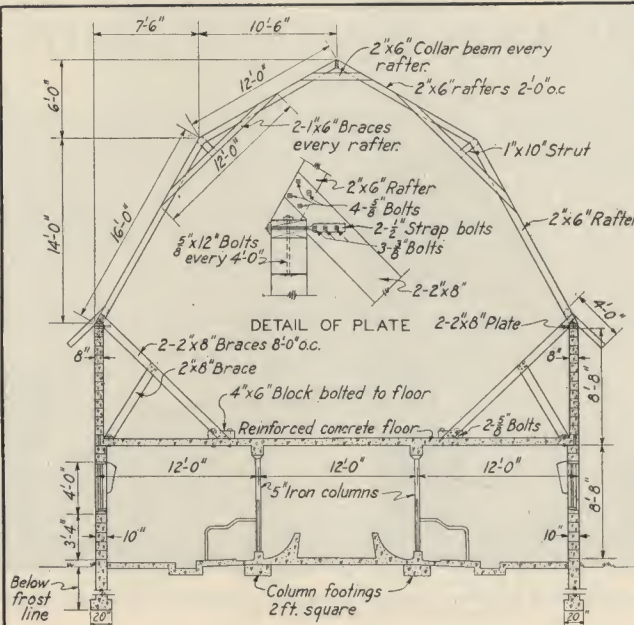 7'-6" 10'-6"
6'-0"
12'-0"
2"x6" Collar beam every
rafter.
2"x6" rafters 2'-0" o.c
2-1"x6" Braces
every rafter.
12'-0"
1"x10" Strut
16'-0"
14'-0"
2"x6" Rafter
4-5/8" Bolts
2-1/2" Strap bolts
3-3/8" Bolts
5/8"x12" Bolts
every 4'-0"
2-2"x8"
2"x6" Rafter
DETAIL OF PLATE
4'-0"
2-2"x8" Plate
8"
8"
2-2"x8" Braces 8'-0" o.c.
2"x8" Brace
4"x6" Block bolted to floor
8'-8"
Reinforced concrete floor
2-5/8" Bolts
12'-0" 12'-0" 12'-0"
4'-0"
5" Iron columns
8'-8"
3'-4"
10"
10"
Below
frost
line
Column footings
2 ft. square
20"
20"